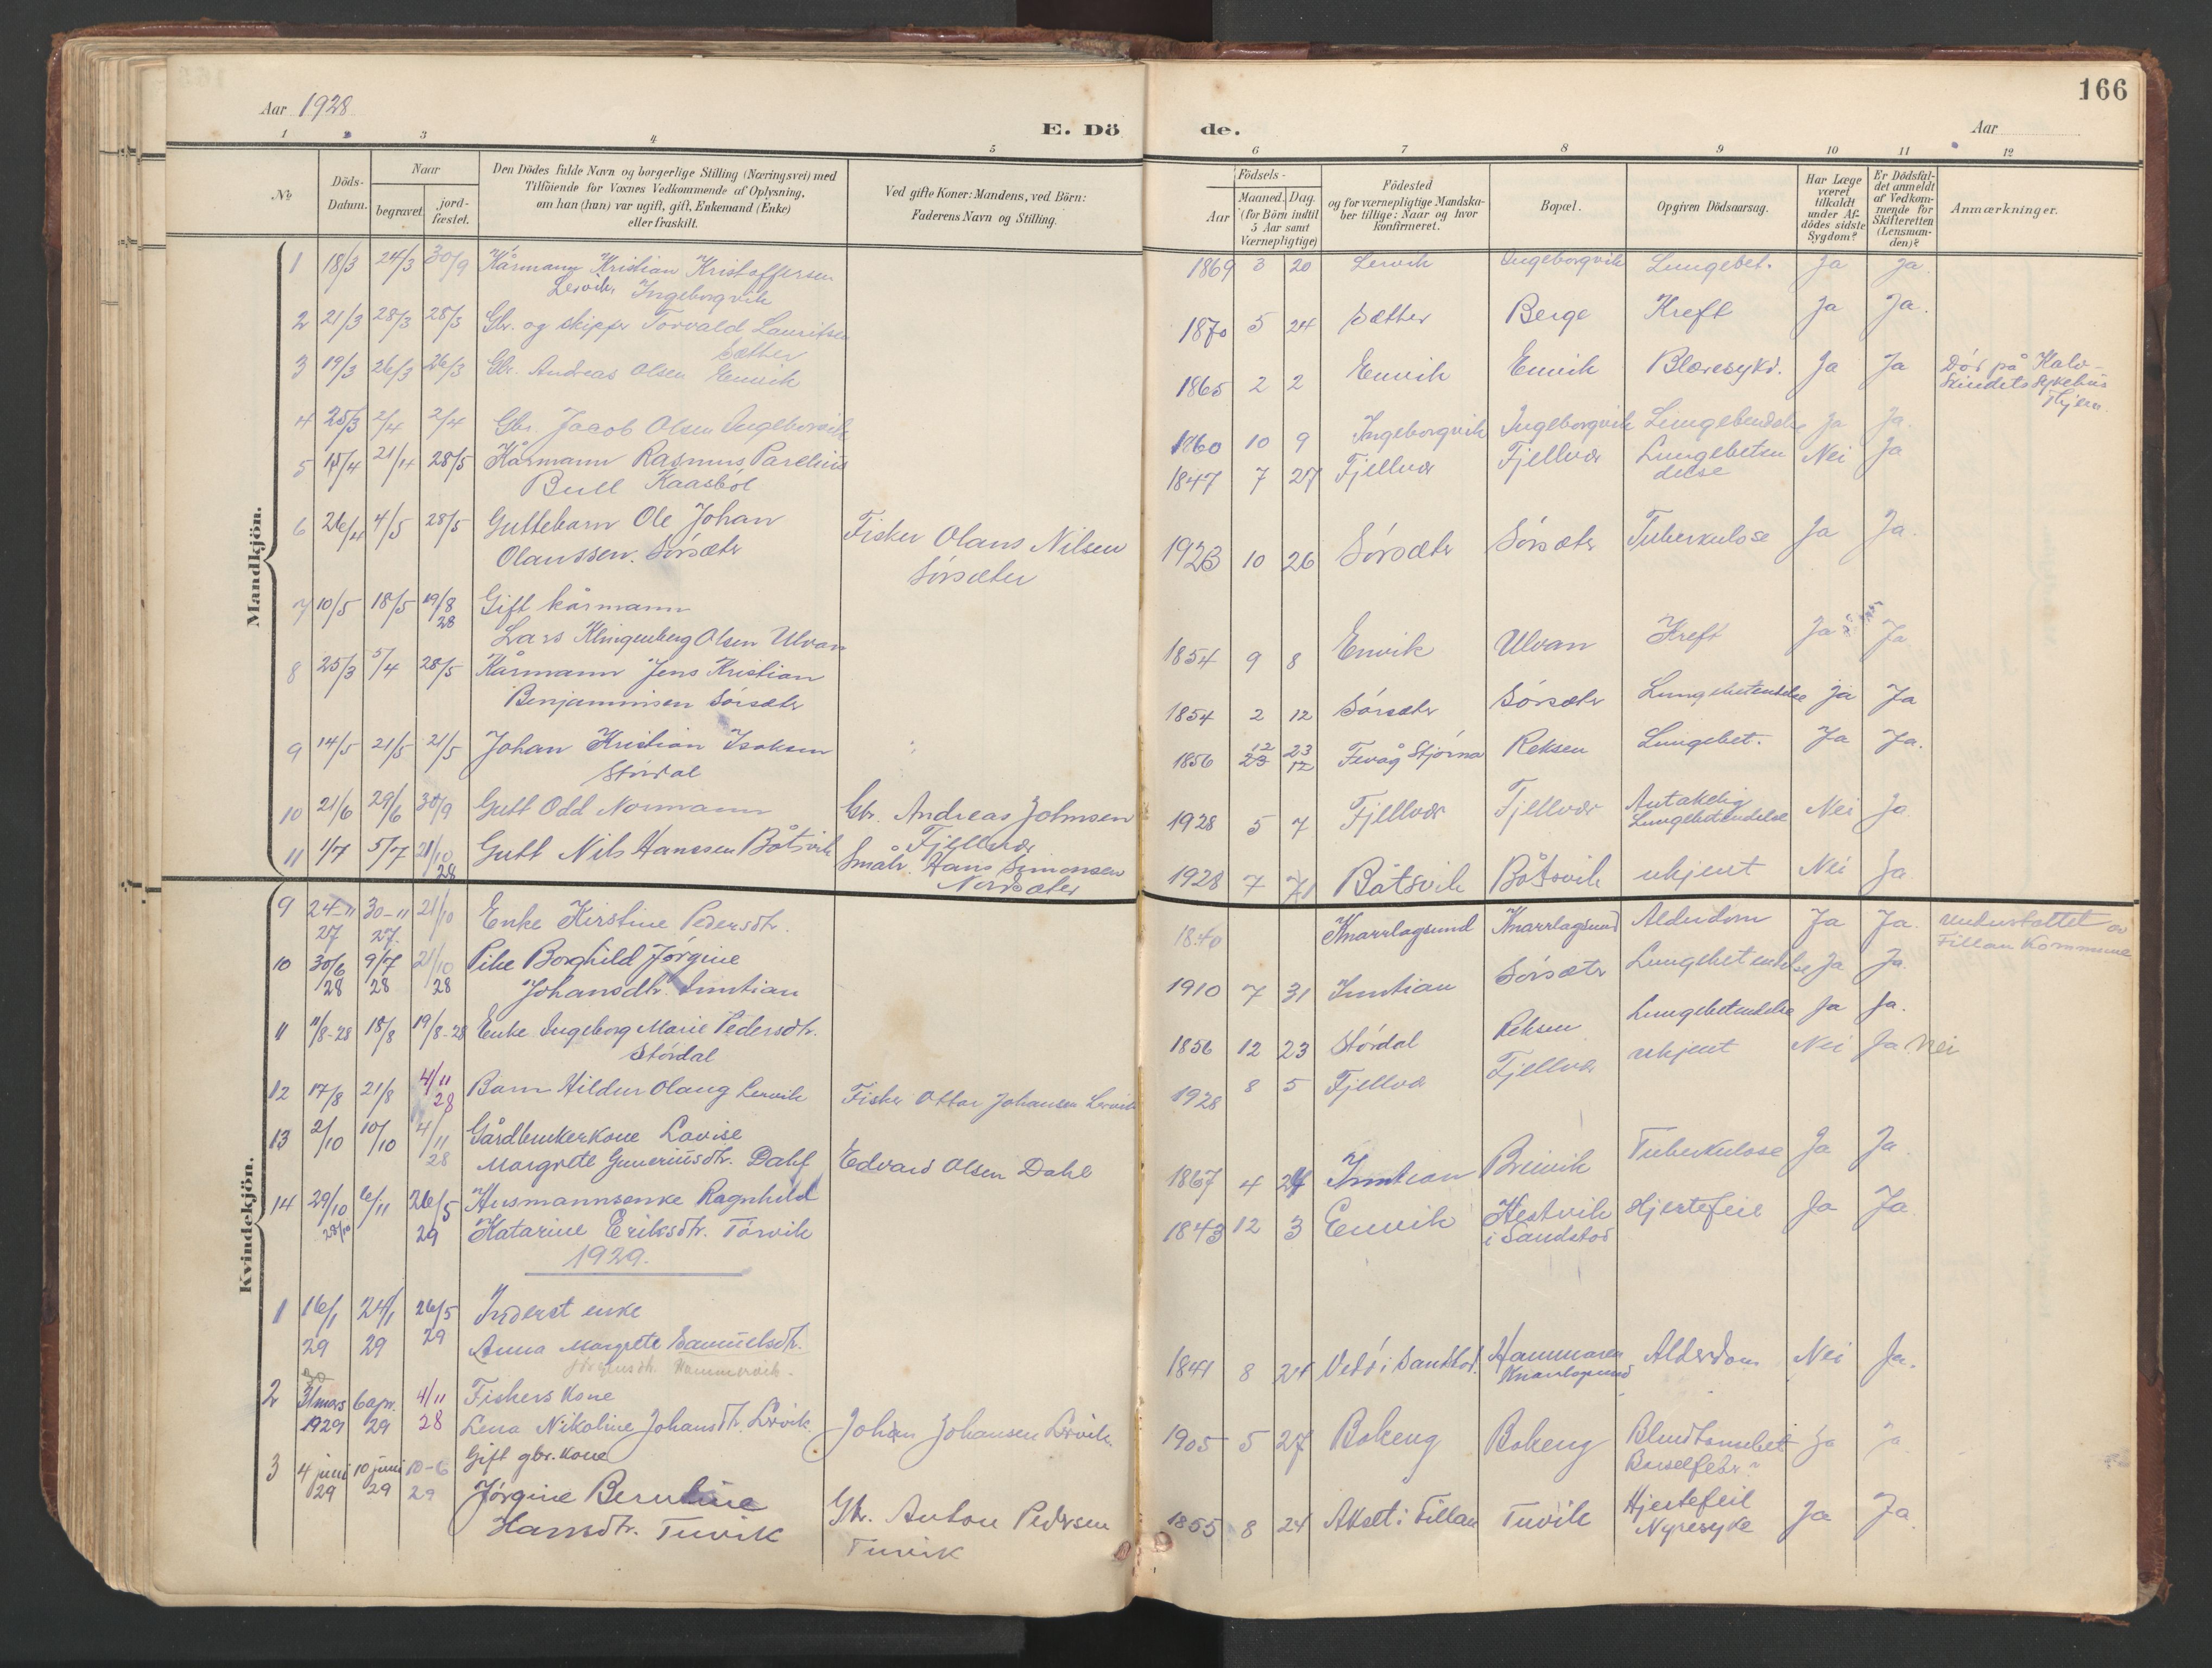 166
Aar 1928
E. Dö
de.
Aar
1 2 3 4 5 6 7 8 9 10 11 12
No
Döds-
Datum.
Naar
begravet.
jord-
fæstet.
Den Dödes fulde Navn og borgerlige Stilling (Næringsvei) med
Tilföiende for Voxnes Vedkommende af Oplysning,
om han (hun) var ugift, gift, Enkemand (Enke)
eller fraskilt.
Ved gifte Koner: Mandens, ved Börn:
Faderens Navn og Stilling.
Födsels-
Aar
Maaned. Dag.
(for Börn indtil
5 Aar samt
Værnepligtige)
Födested
og for værnepligtige Mandska-
ber tillige: Naar og hvor
konfirmeret.
Bopæl.
Opgiven Dödsaarsag.
Har Læge
været
tilkaldt
under Af-
dödes sidste
Sygdom?
Er Dödsfal-
det anmeldt
af Vedkom-
mende for
Skifteretten
(Lensman-
den)?
Anmærkninger.
Mandkjön.
1 18/3 24/3 30/9 Kårmann Kristian Kristoffersen 1869 3 20 Lervik Ingeborgvik Lungebet. Ja Ja.
Lervik, Ingeborgvik
2 21/3 28/3 28/3 Gbr. og skipper Torvald Lauritsen 1870 5 24 Sætter Berge Kreft Ja Ja.
Sætter
3 19/3 26/3 26/3 Gbr. Andreas Olsen Envik 1865 2 2 Envik Envik Blæresykd. Ja Ja Död på Kalv-
skindets sykehus
Thjem.
4 25/3 2/4 2/4 Gbr. Jacob Olsen Ingeborvik 1860 10 9 Ingeborgvik Ingeborgvik Ja Ja.
5 15/4 21/4 28/5 Kårmann Rasmus Parelius 1847 7 27 Fjellvær Fjellvær Lungebeten Nei Ja
delse
Bull Kaasböl
6 26/4 4/5 28/5 Guttebarn Ole Johan Fisker Olaus Nilsen 1923 10 26 Sörsæter Sörsæter Tuberkulose Ja Ja.
Olaussen. Sörsæter Sörsæter
7 10/5 18/5 19/8 28 Gift kårmann
Lars Klingenberg Olsen Ulvan 1854 9 8 Envik Ulvan Kreft Ja Ja
8 25/3 5/4 28/5 Kårmann Jens Kristian
Benjaminsen Sörsæter 1854 2 12 Sörsæter Sörsæter Lungebetendelse Ja Ja
9 14/5 21/5 21/5 Johan Kristian Isaksen 1856 12 23 23 12 Fevåg Stjörna Reksen Lungebet. Ja Ja.
Stördal
10 21/6 29/6 30/9 Gutt Odd Normann Gbr. Andreas Johnsen 1928 5 7 Fjellvær Fjellvær Antakelig Nei Ja
Lungebetendelse
Fjellvær
11 1/7 5/7 21/10 28 Gutt Nils Hanssen Båtsvik Småbr. Hans Simonsen 1928 7 Båtsvik Båtsvik ukjent Nei Ja
Nordsæter
Kvindekjön.
9 24-11 27 30-11 27. 21/10 Enke Kirstine Pedersdtr. 1840 Knarrlagsund Knarrlagsund Alderdom Ja Ja. understöttet av
Fillan Kommune
10 30/6 28 9/7 28 21/10 28 Pike Borghild Jörgine
Johansdtr. Inntian 1910 7 31 Inntian Sörsæter Lungebetendelse Ja Ja.
11 11/8-28 18/8 19/8-28 Enke Ingeborg Marie Pedersdtr. 1856 12 23 Stördal Reksen Lungebetendelse Ja Ja.
Stördal
12 17/8 21/8 4/11 28 Barn Hildur Olaug Lervik Fisker Ottar Johansen Lervik 1928 8 5 Fjellvær Fjellvær ukjent Nei Ja Nei
13 2/10 10/10 4/11 28 Gårdbrukerkone Lovise
Margrete Guneriusdtr. Dahl Edvard Olsen Dahl 1867 4 24 Inntian Breivik Tuberkulose Ja Ja
14 29/10 28/10 6/11 26/5 29 Husmannsenke Ragnhild
Katarine Eriksdtr. Törvik 1843 12 3 Envik Hestvik Hjertefeil Ja Ja
i Sandstad
1929.
1 16/1 29 24/1 29 26/5 29 Inderst enke
Anna Margrete Samuelsdtr. 1841 8 24 Vedö i Sandstad. Hammaren Alderdom Nei Ja.
Knarrlagsund
Jörgensdtr. Hammervik.
2 30 31 mars 1929 6 apr. 29 4/11 28 Fiskers kone
Lena Nikoline Johansdtr. Lervik. Johan Johansen Lervik. 1905 5 27 Bokeng Bokeng Ja Ja
Barselfeber?
3 4 juni 29 10 juni 29 10-6 29 Gift gbr. kone
Jörgine Berntine
Hansdtr. Tuvik Gbr. Anton Pedersen 1855 8 24 Akset i Fillan Tuvik Hjertefeil Ja Ja.
Nyresyke
Tuvik